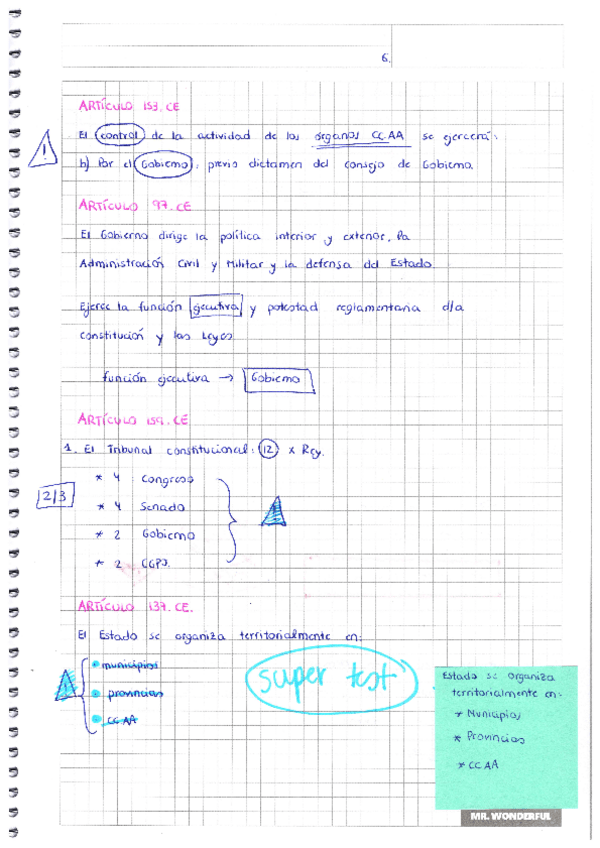 6.
ARTÍCULO 153.CE
El control de la actividad de los órganos CCAA se ejercerá:
b) Por el Gobierno, previo dictamen del consejo de Gobierno.
ARTÍCULO 97.CE
El Gobierno dirige la política interior y exterior, la
Administración Civil y Militar y la defensa del Estado.
Ejerce la función ejecutiva y potestad reglamentaria d/a
constitución y las Leyes
función ejecutiva → Gobierno
ARTÍCULO 159.CE
1. El Tribunal constitucional: 12 x Rey.
* 4 : Congreso
2/3
* 4 Senado
* 2 Gobierno
* 2 CGPJ.
ARTÍCULO 137.CE.
El Estado se organiza territorialmente en:
• municipios
• provincias
• CCAA
super test
Estado se organiza
territorialmente en:
* Municipios
* Provincias
* CCAA
MR. WONDERFUL